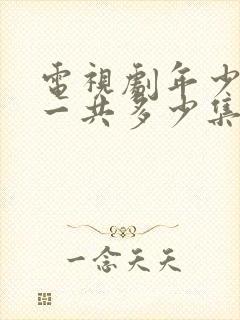 電視劇年少
一共多少集
一念天天